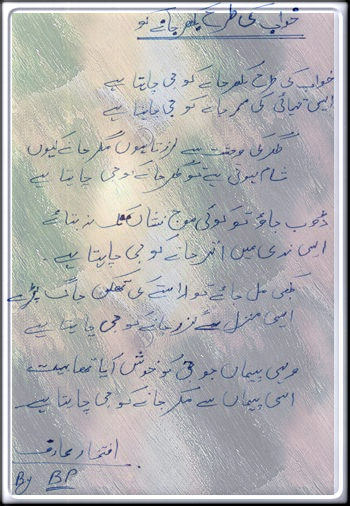 خواب کی طرح بکھر جانے کو
خواب کی طرح بکھر جانے کو جی چاہتا ہے
ایسی تنہائی کی مر جانے کو جی چاہتا ہے
گھر کی وحشت سے لرزتا ہوں مگر جانے کیوں
شام ہوتی ہے تو گھر جانے کو جی چاہتا ہے
ڈوب جاؤ تو کوئی موج نشاں تک نہ بتائے
ایسی ندی میں اتر جانے کو جی چاہتا ہے
کبھی مل جائے تو راستے کی تھکن جاگ پڑے
ایسی منزل سے گزر جانے کو جی چاہتا ہے
وہی پیماں جو جی کو خوش آیا تھا بہت
اسی پیماں سے مکر جانے کو جی چاہتا ہے
افتخار عارف
By BP